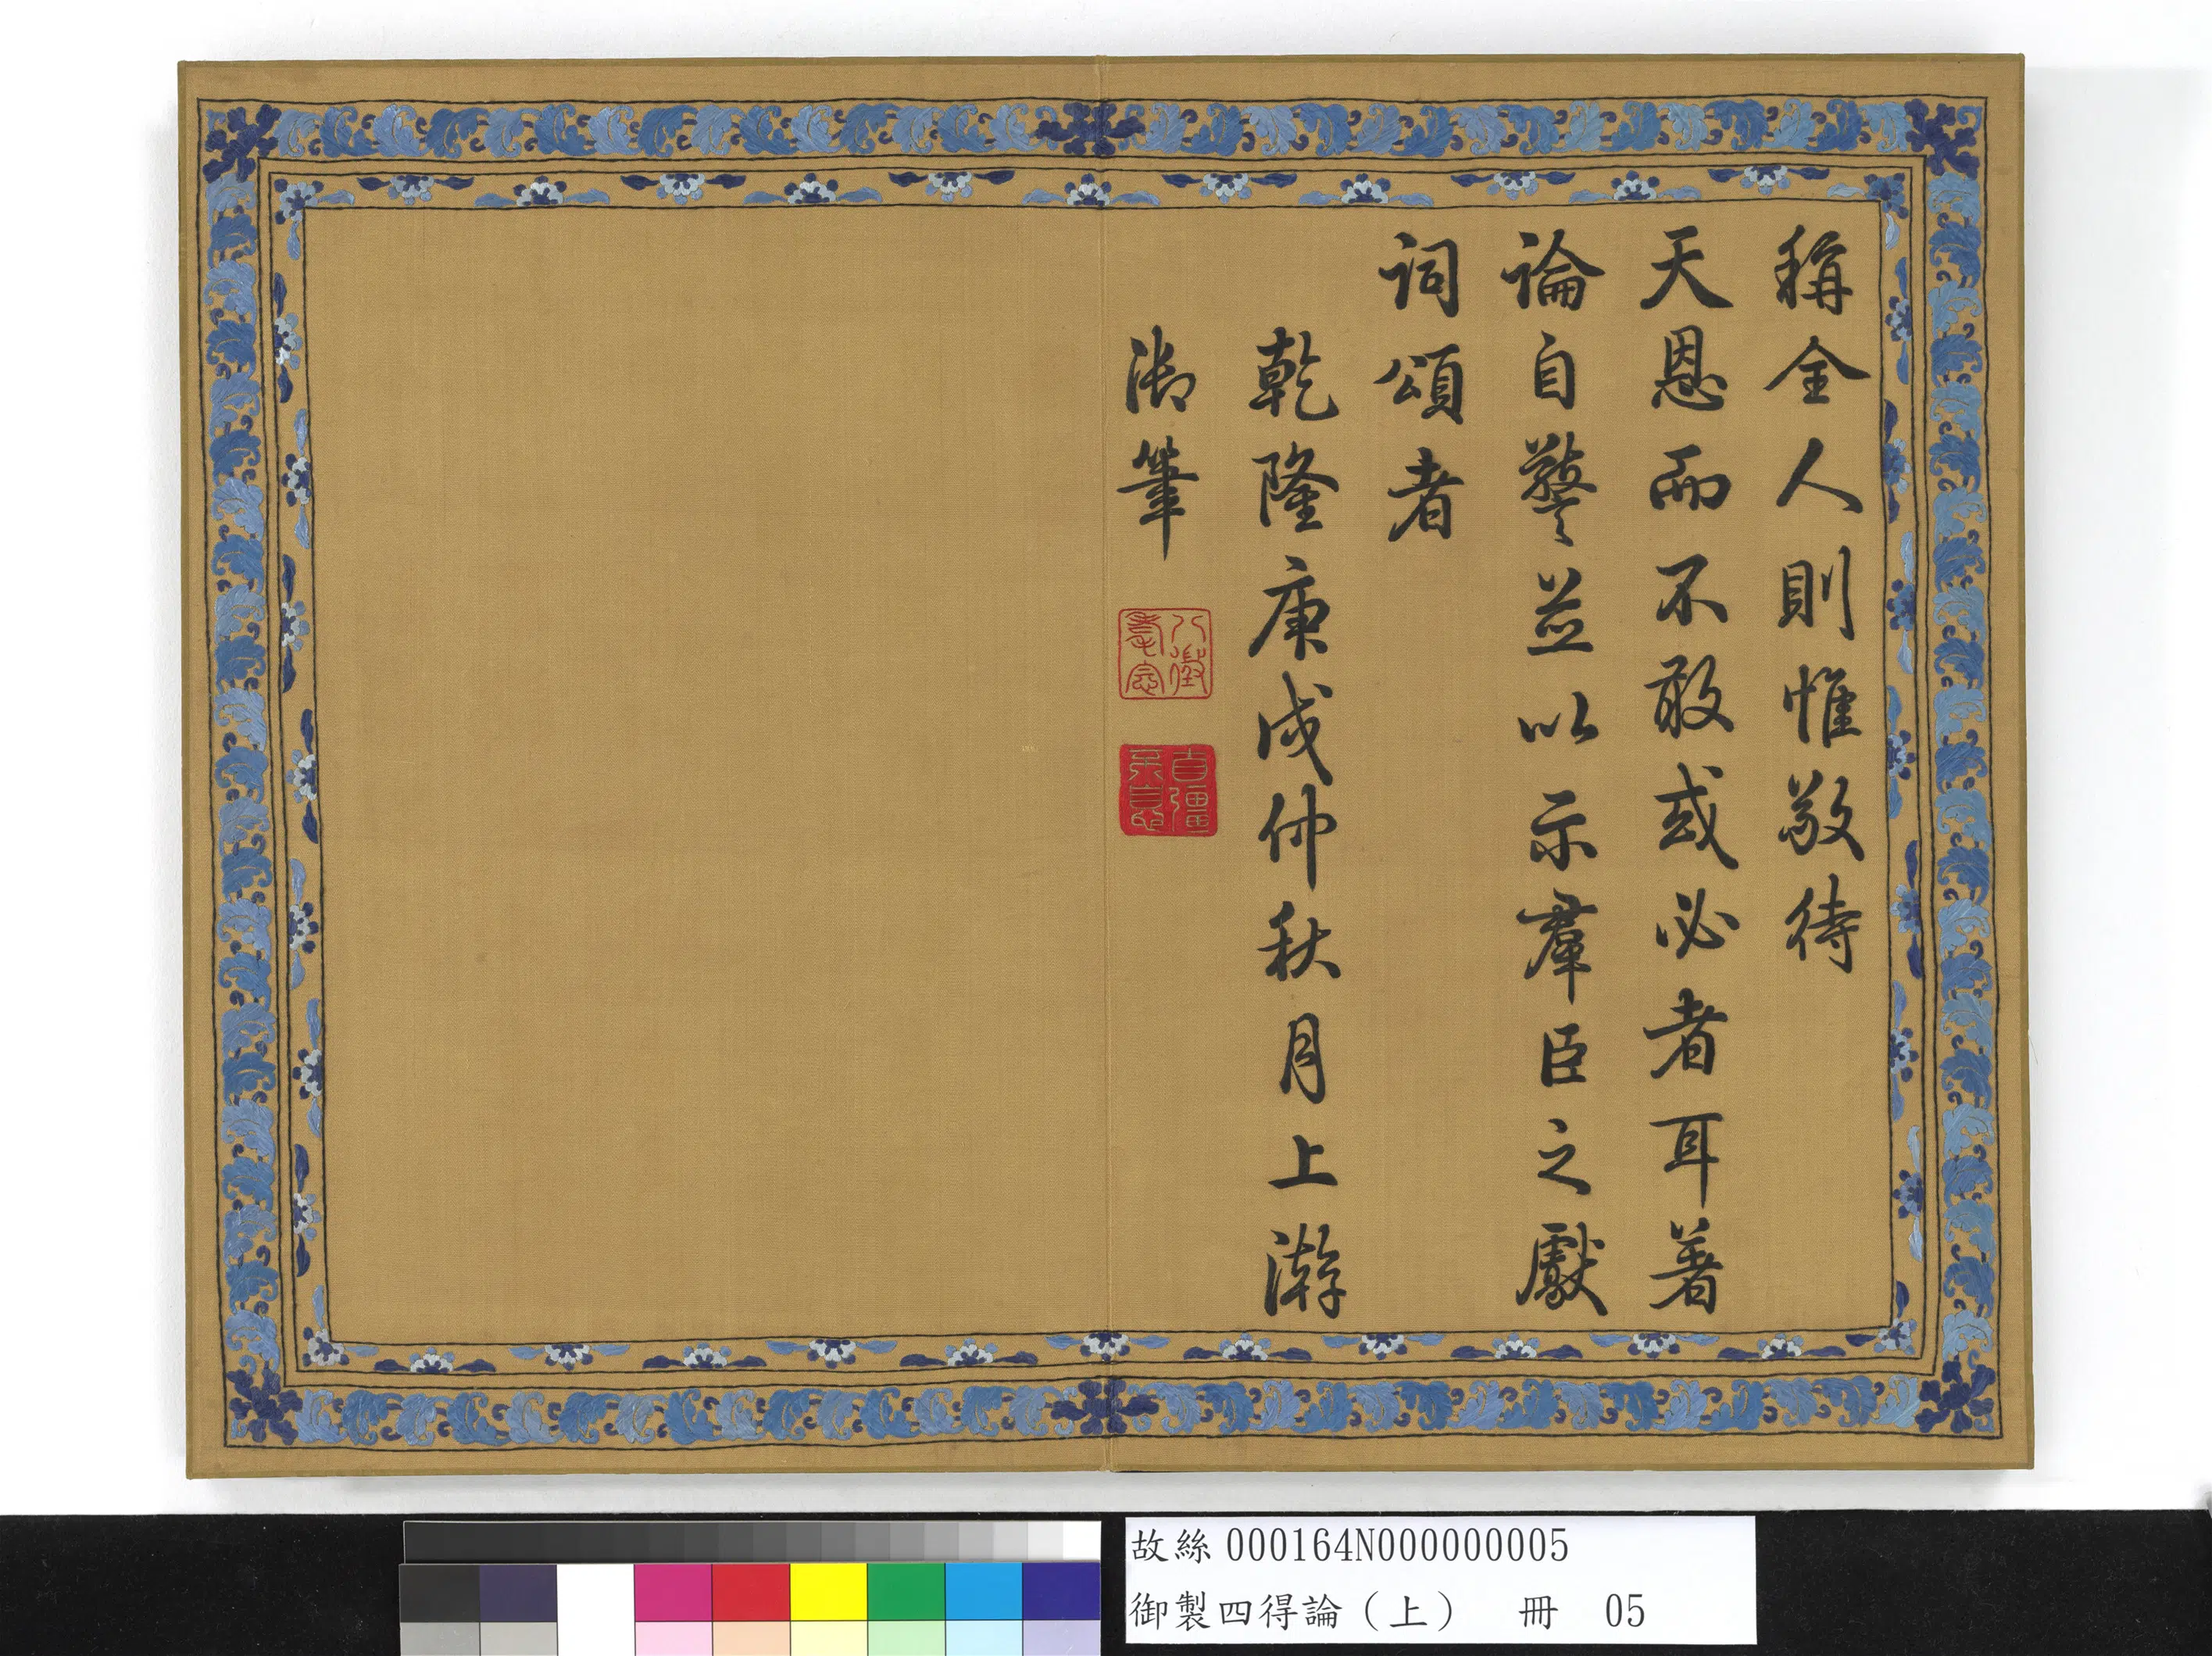 稱全人則惟敬待
天恩而不敢或必者耳著
論自警並以示羣臣之獻
詞頌者
乾隆庚戌仲秋月上澣
御筆
八徵耄念
自彊不息
故絲000164N000000005
御製四得論（上） 冊 05